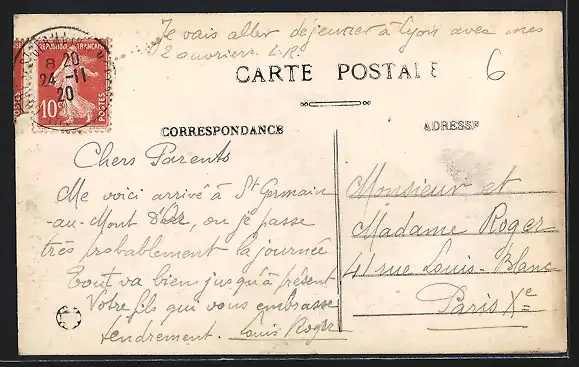 Je vais aller déjeuner à Lyon avec mes
2 ouvriers. L.R.
6
CARTE POSTALE
REPUBLIQUE FRANÇAISE
POSTES
10c
POSTES
8 20
24 -11
20
CORRESPONDANCE
ADRESSE
Chers Parents
Me voici arrivé à St Germain
-au-Mont d'Or, ou je passe
très probablement la journée
Tout va bien jusqu'à présent
Votre fils qui vous embrasse
tendrement. Louis Roger
Monsieur et
Madame Roger
41 rue Louis-Blanc
Paris Xe